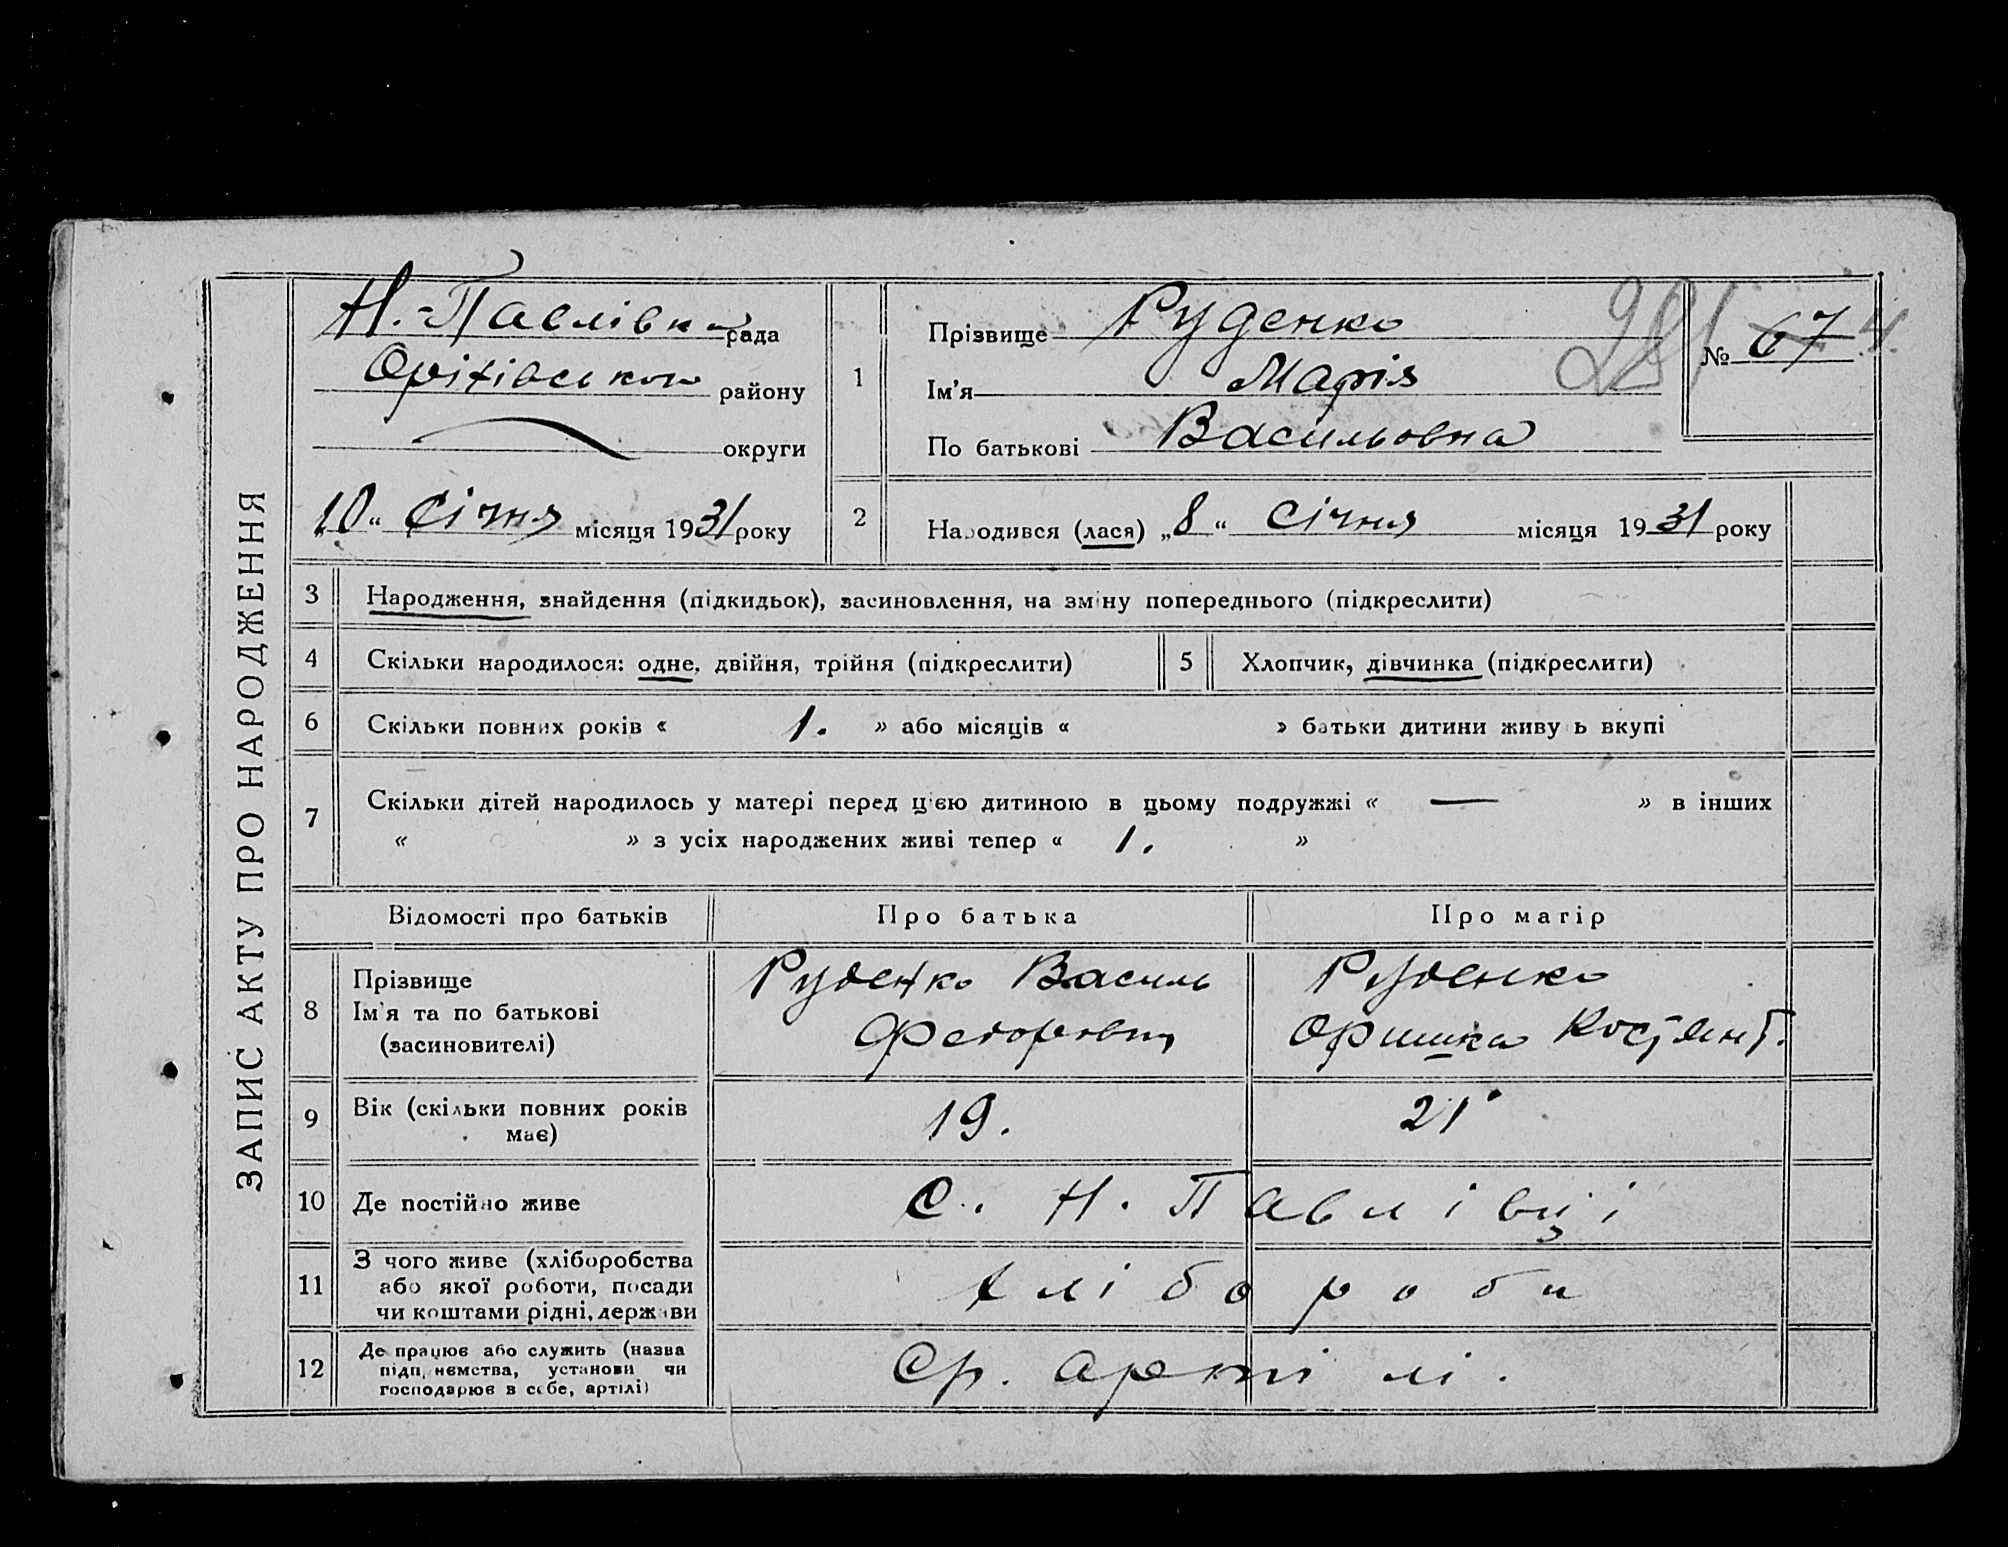 ЗАПИС АКТУ ПРО НАРОДЖЕННЯ
Н.-Павлівка рада
Оріхівського району
округи
10 " Січня місяця 1931 року
1
Прізвище Руденко
Ім'я Марія
По батькові Васильовна
№ 67 4
281
2
Народився (лася) „8 " Січня місяця 1931 року
3 Народження, знайдення (підкидьок), засиновлення, на зміну попереднього (підкреслити)
4 Скільки народилося: одне, двійня, трійня (підкреслити) 5 Хлопчик, дівчинка (підкреслити)
6 Скільки повних років « 1. » або місяців « » батьки дитини живуть вкупі
7 Скільки дітей народилось у матері перед цією дитиною в цьому подружжі « — » в інших
« » з усіх народжених живі тепер « 1. »
Відомості про батьків Про батька Про матір
8 Прізвище
Ім'я та по батькові
(засиновителі)
Руденко Василь
Федорович
Руденко
Оришка Костянт.
9 Вік (скільки повних років
має)
19. 21
10 Де постійно живе
с. Н. Павлівці
11 З чого живе (хліборобства
або якої роботи, посади
чи коштами рідні, держави
хлібороби
12 Де працює або служить (назва
підприємства, установи чи
господарює в себе, артілі)
Ср. артілі.